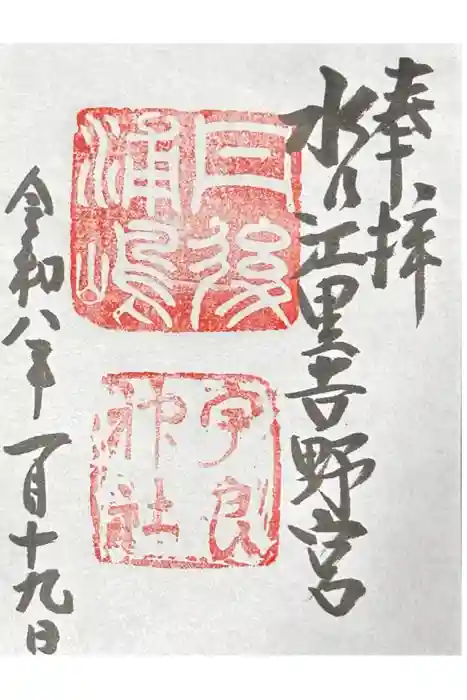 奉拝
水江里吉野宮
丹後
浦嶋
宇良
神社
令和八年一月十九日